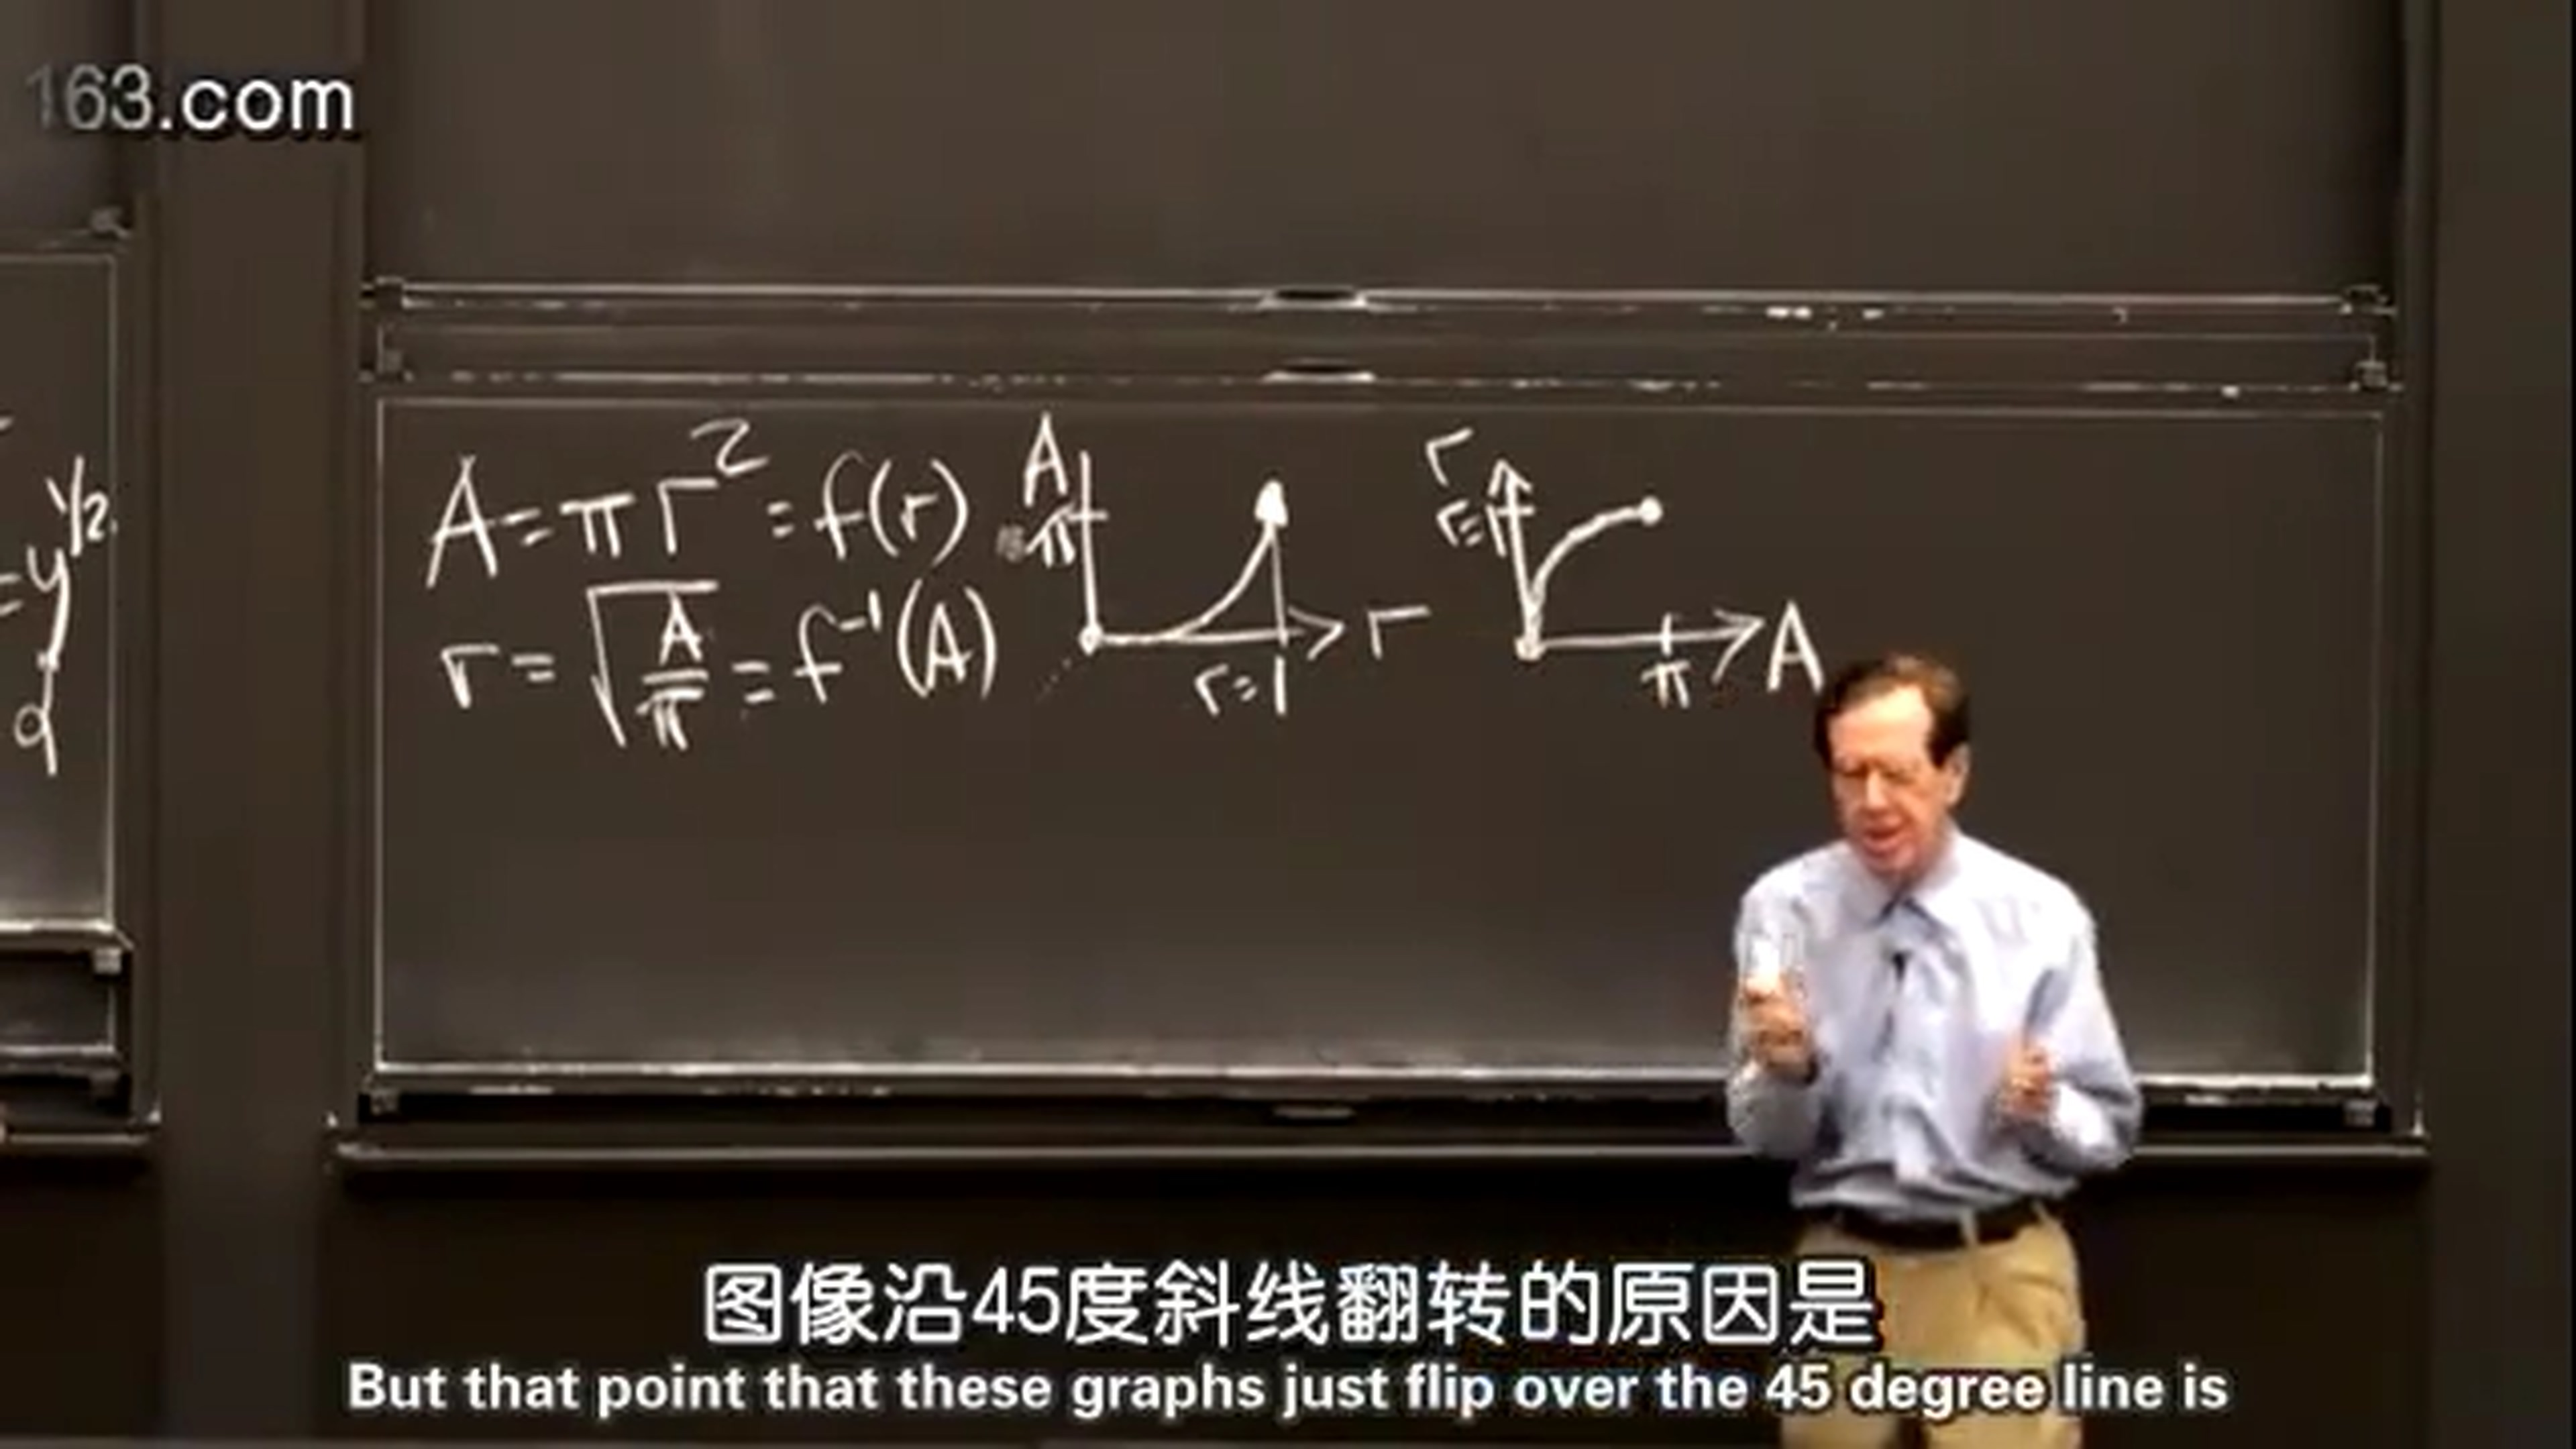 163.com
y^{1/2}
=
A = π r² = f(r)
r = √(A/π) = f⁻¹(A)
A
π
r=1
r
r
r=1
π
A
图像沿45度斜线翻转的原因是
But that point that these graphs just flip over the 45 degree line is